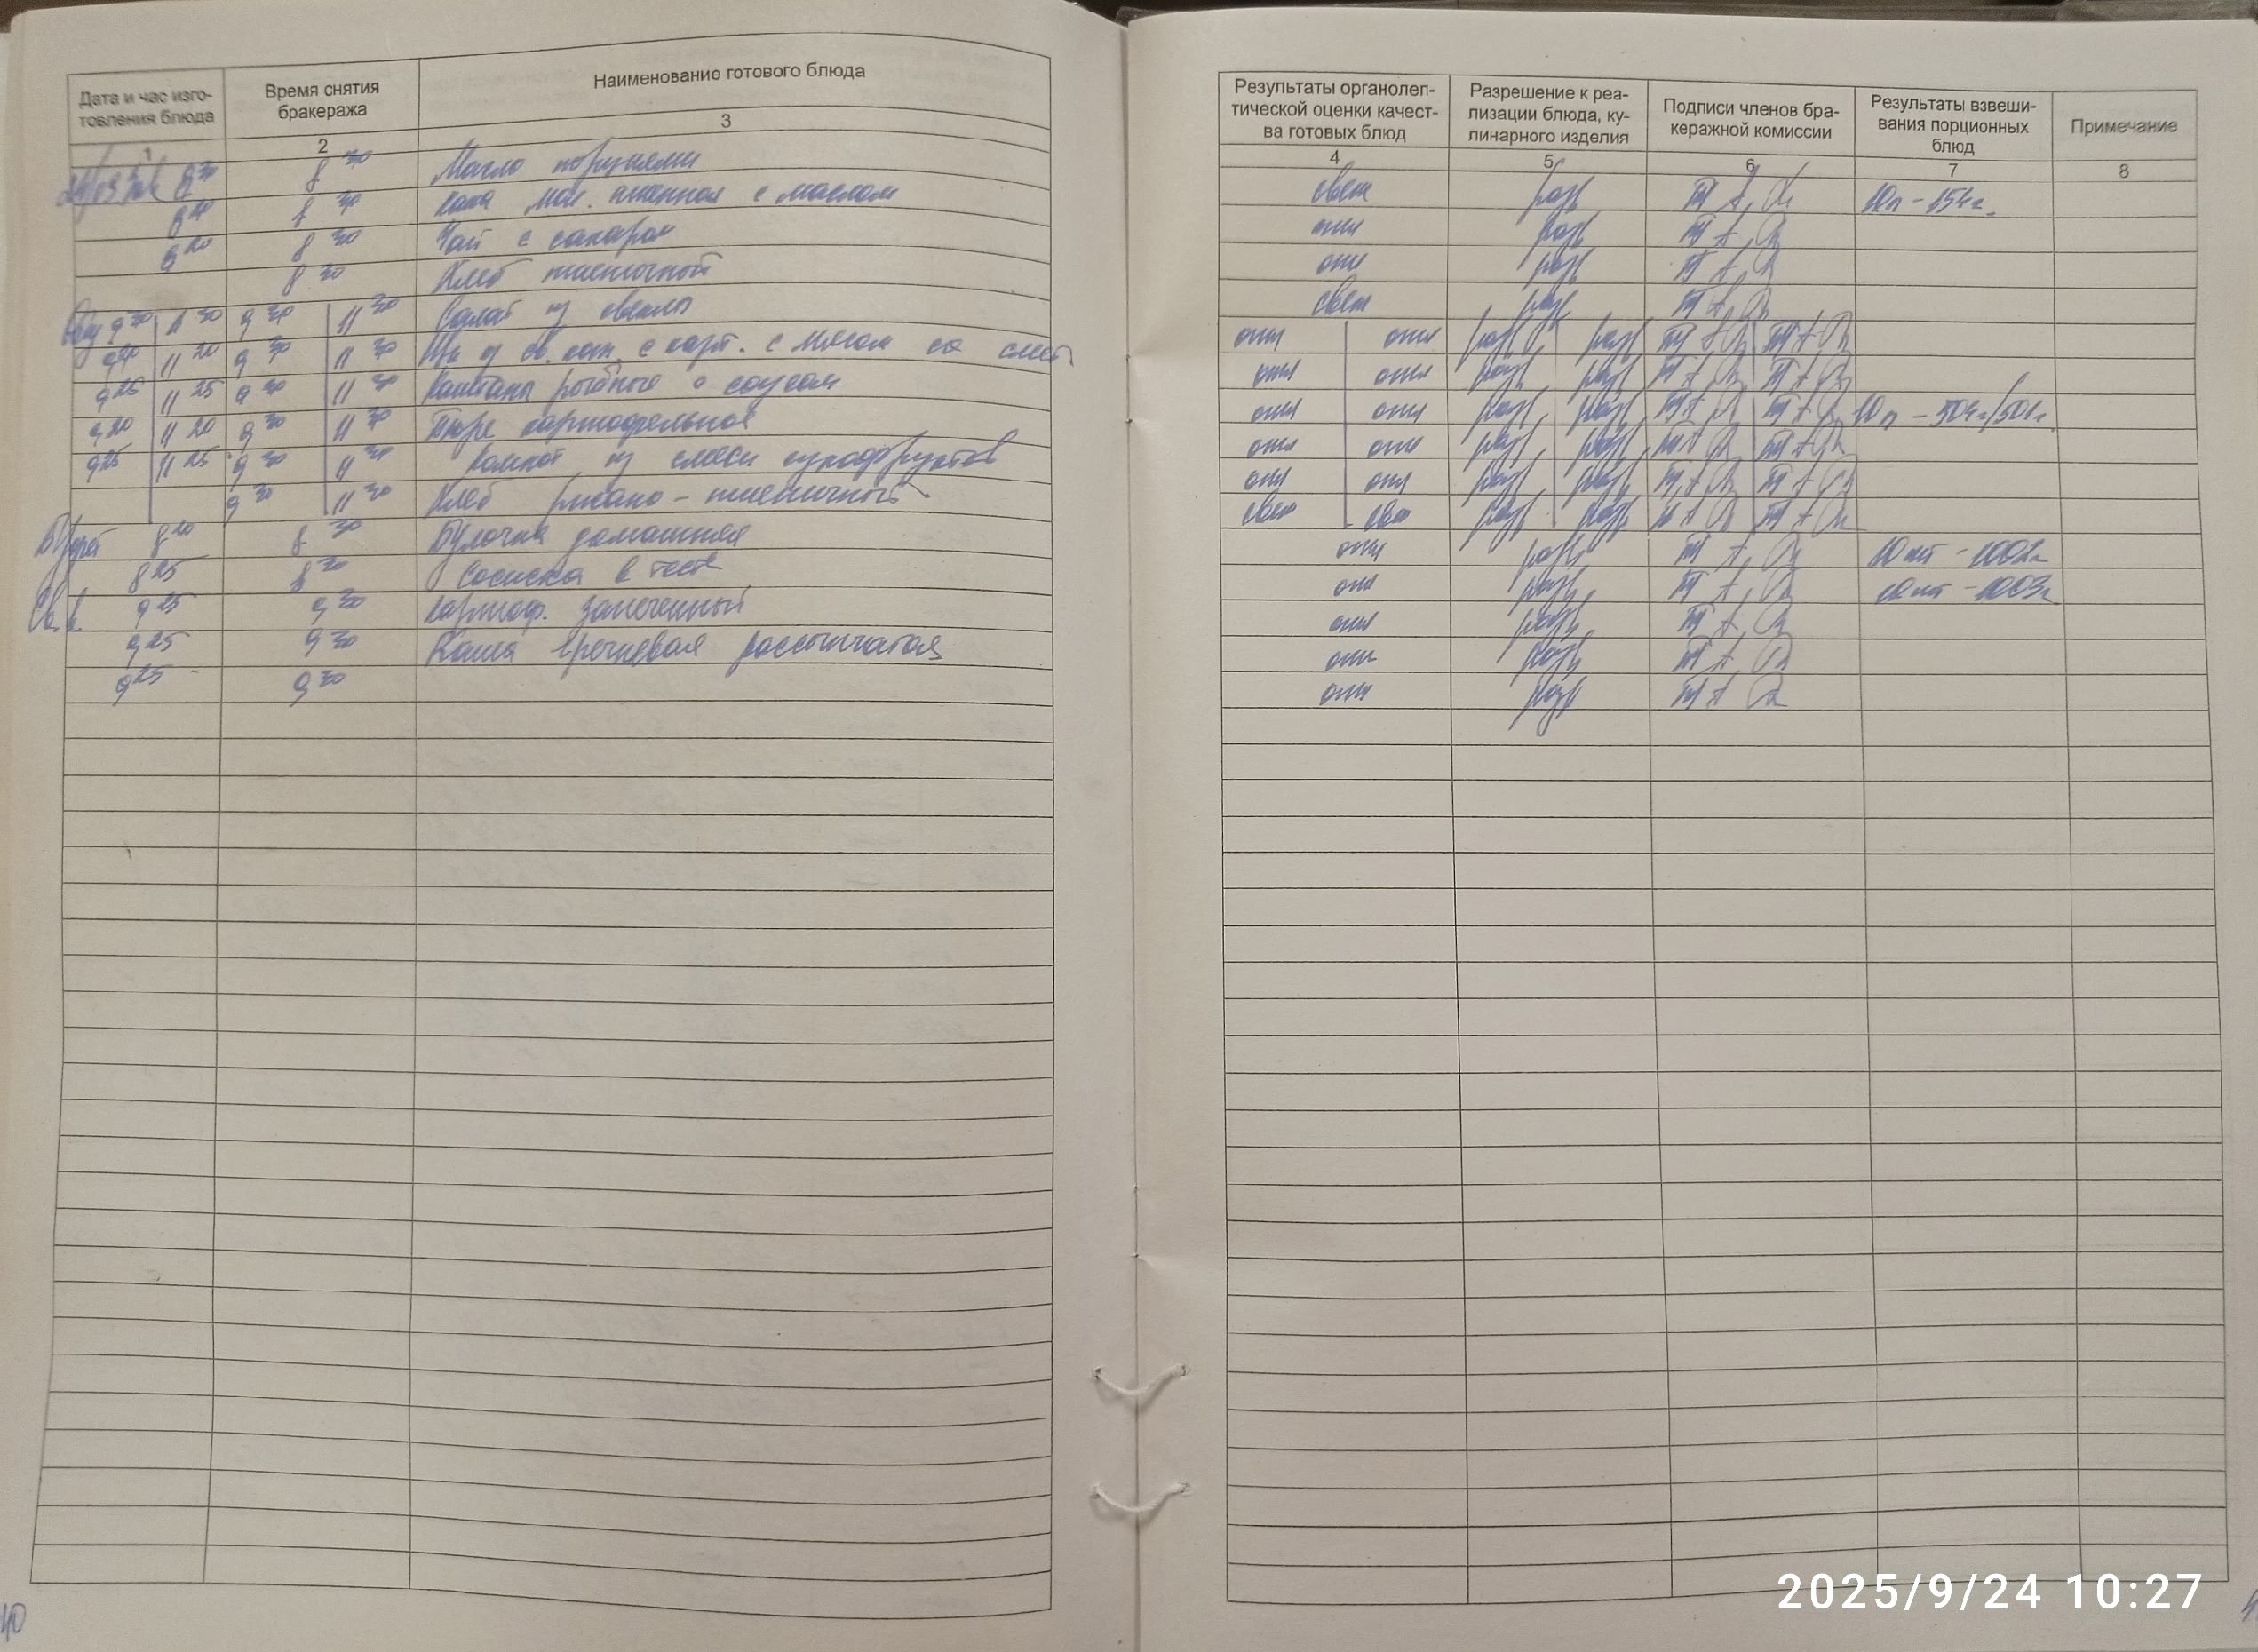 Дата и час изго-
товления блюда
Время снятия
бракеража
Наименование готового блюда
1 2 3
8 30 8 30 Масло порциями
8 20 8 30 Каша мол. пшенная с маслом
8 20 8 30 Чай с сахаром
8 30 Хлеб пшеничный
9 20 11 20 9 30 11 30 Салат из свеклы
9 20 11 20 9 30 11 30 Щи из св. кап. с карт. с мясом со смет.
9 25 11 25 9 30 11 30 рыбные с соусом
9 20 11 20 9 30 11 30 Пюре картофельное
9 25 11 25 9 30 11 30 Компот из смеси сухофруктов
9 30 11 30 Хлеб ржано-пшеничный
Буфет 8 20 8 30 Булочка домашняя
8 25 8 30 Сосиска в тесте
9 25 9 30 Картоф. запеченный
9 25 9 30 Каша гречневая рассыпчатая
9 25 9 30
40
Результаты органолеп-
тической оценки качест-
ва готовых блюд
Разрешение к реа-
лизации блюда, ку-
линарного изделия
Подписи членов бра-
керажной комиссии
Результаты взвеши-
вания порционных
блюд
Примечание
4 5 6 7 8
свеж разр 10п - 154г.
отл разр
отл разр
свеж разр
отл отл разр разр
отл отл разр разр
отл отл разр разр 10п - 504г/501г.
отл отл разр разр
отл отл разр разр
свеж свеж разр разр
отл разр 10шт - 1002г
отл разр 10шт - 1003г
отл разр
отл разр
отл разр
2025/9/24 10:27